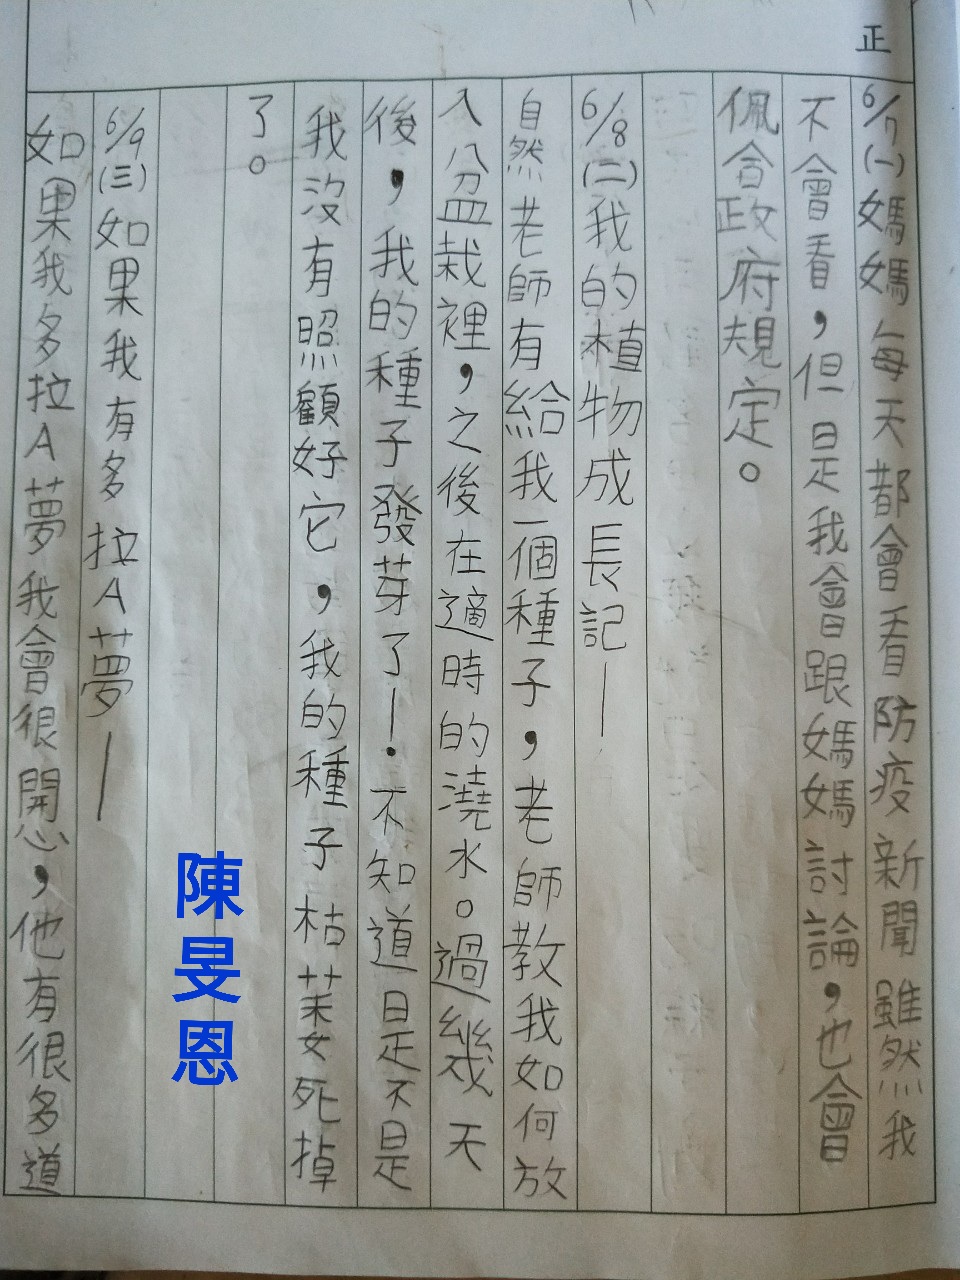 正
6/7(一)媽媽每天都會看防疫新聞雖然我
不會看，但是我會跟媽媽討論，也會
佩合政府規定。
6/8(二)我的植物成長記—
自然老師有給我一個種子，老師教我如何放
入盆栽裡，之後在適時的澆水。過幾天
後，我的種子發芽了—．不知道是不是
我沒有照顧好它，我的種子枯萎死掉
了。
6/9(三)如果我有多拉A夢—
如果我多拉A夢我會很開心，他有很多道
陳旻恩